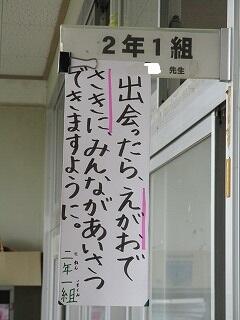 2年1組
先生
出会ったら、えがおで
さきに、みんながあいさつ
できますように。
二年一組
にねんいちくみ